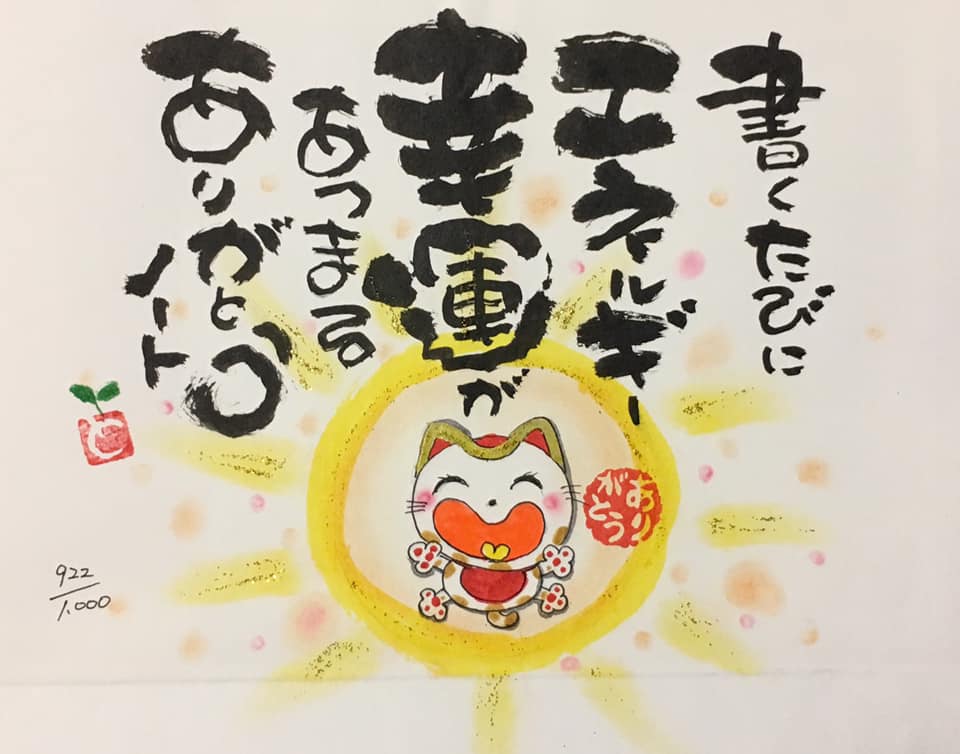 書くたびに
エネルギー
幸運が
あつまる
ありがとう
ノート
ありがとう
と
922/1,000